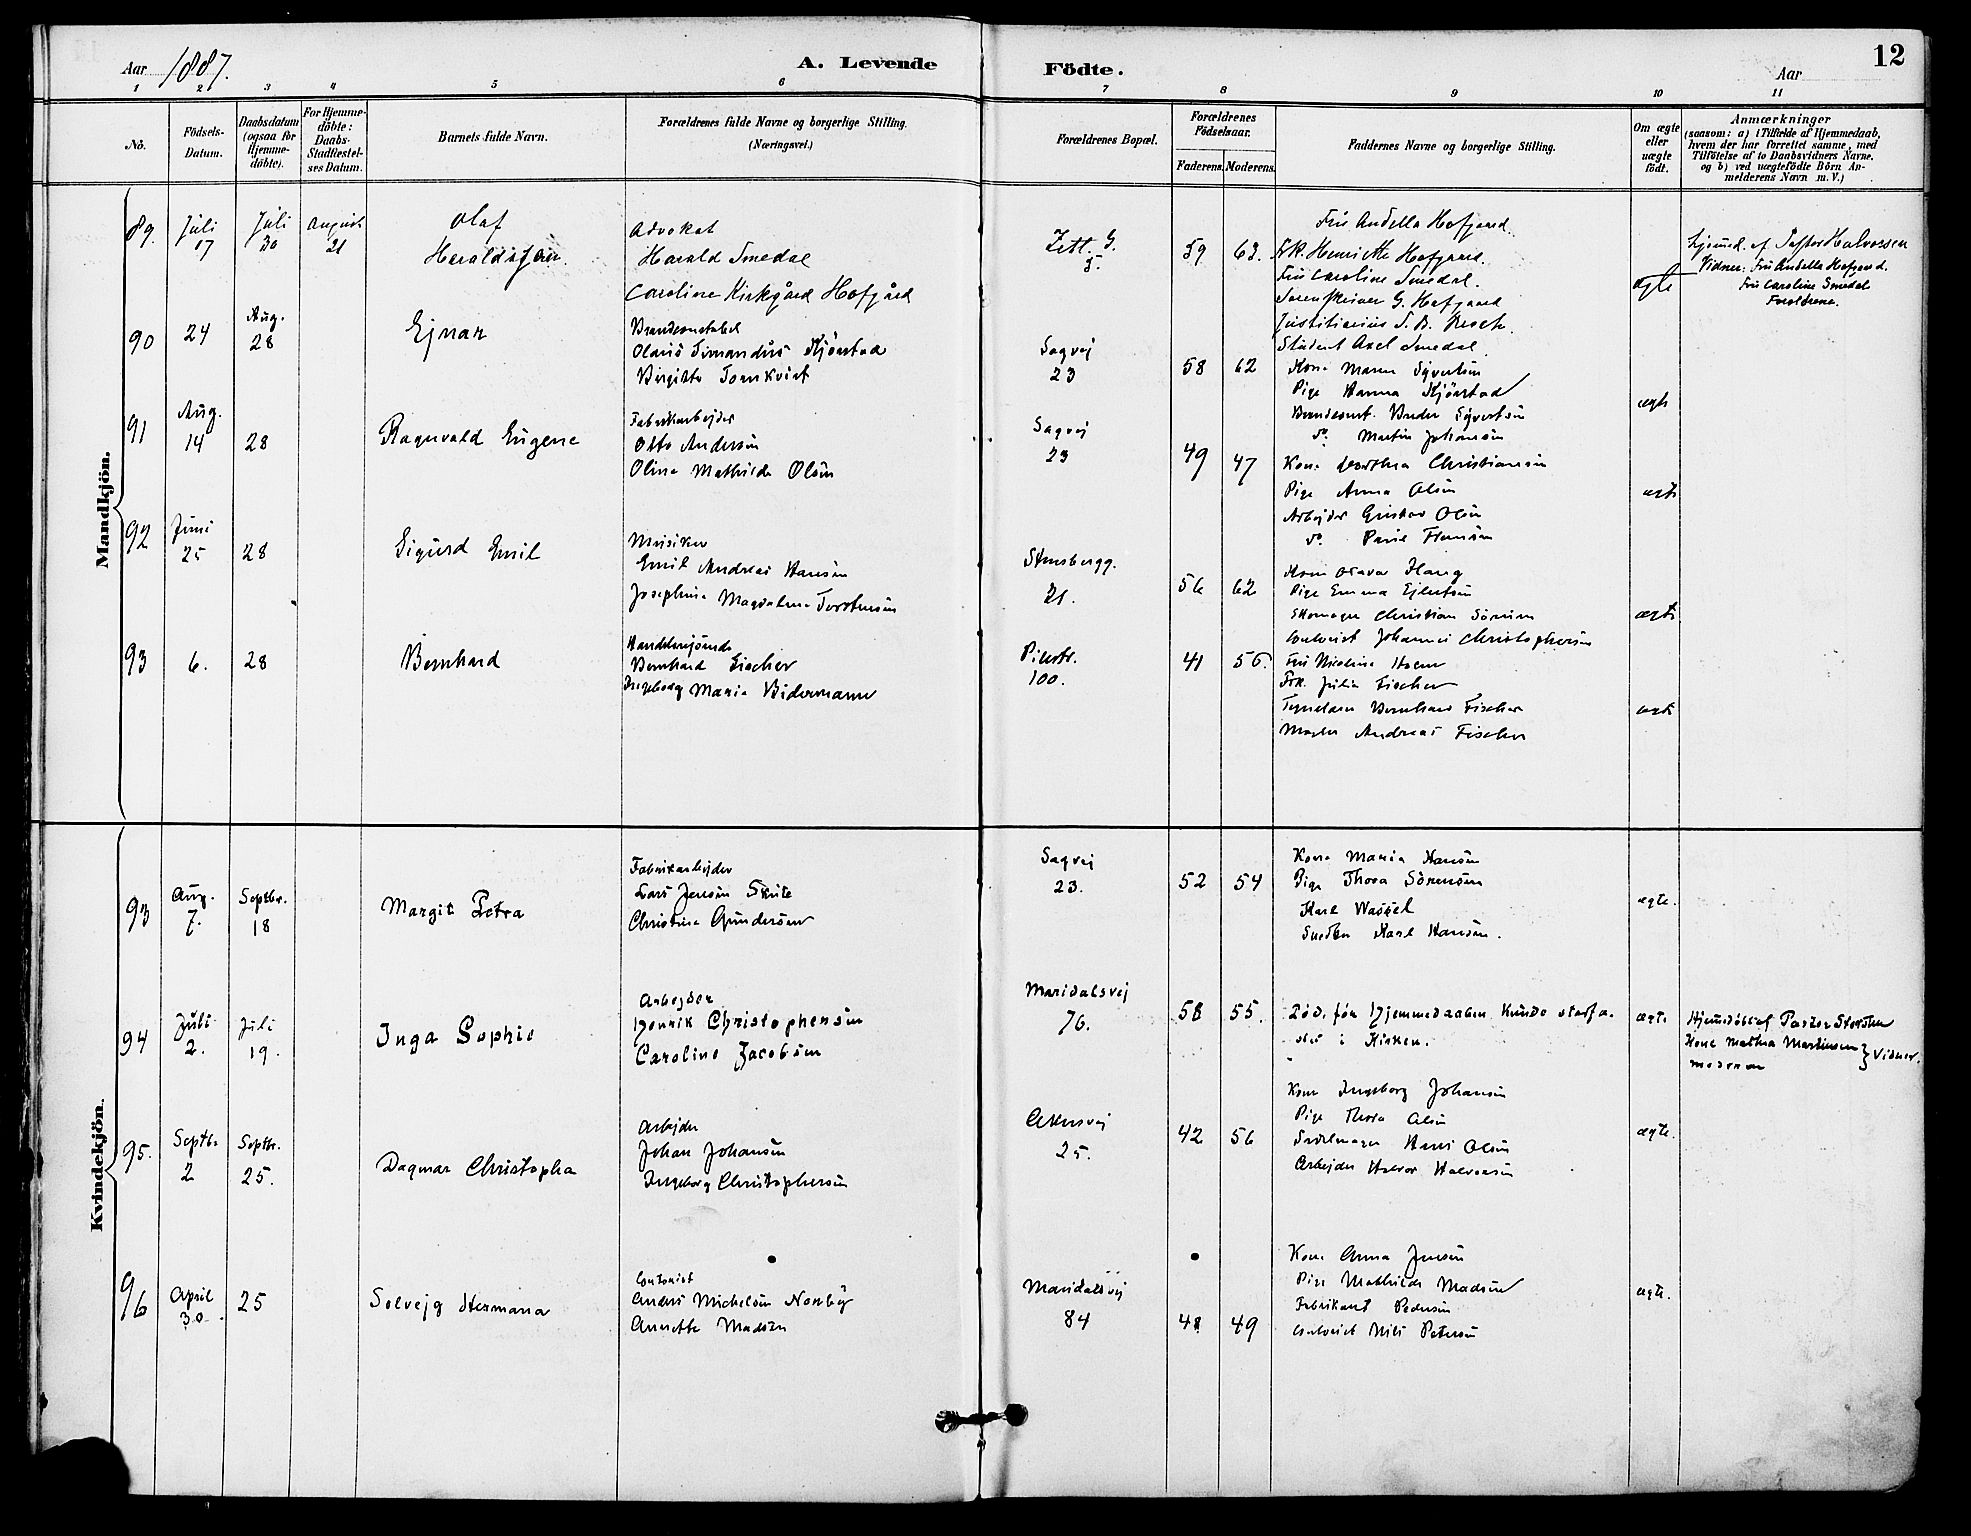 Aar 1887.
A. Levende Födte.
Aar
12
1 2 3 4 5 6 7 8 9 10 11
No.
Födsels-Datum.
Daabsdatum (ogsaa for Hjemmedöbte).
For Hjemmedöbte: Daabs-Stadfæstelses Datum.
Barnets fulde Navn.
Forældrenes fulde Navne og borgerlige Stilling.
(Næringsvei.)
Forældrenes Bopæl.
Forældrenes Födselsaar.
Faderens. Moderens.
Faddernes Navne og borgerlige Stilling.
Om ægte eller uægte födt.
Anmærkninger
(saasom: a) i Tilfælde af Hjemmedaab,
hvem der har forrettet samme, med
Tilföielse af to Daabsvidners Navne,
og b) ved uægtefödte Börn An-
melderens Navn m. V.)
Mandkjön.
89. Juli 17 Juli 30 August 21
Olaf
Advokat
Harald Smedal
Caroline Kirkgård Hofgård
59 63.
Fru Andella Hofgaard.
Frk. Henriette Hofgaard.
Fru Caroline Smedal.
Sorenskriver G. Hofgaard
Justitiarius
Student Axel Smedal.
ægte
Hjemd. af Pastor Halvorsen
Vidner: Fru Andella Hofgaard.
Fru Caroline Smedal
Forældrene.
90 24 Aug. 28
Ejnar
Brandconstabel
Olaus Simandus Kjörstad
Birgitte Tornkvist
Sagvej
23
58 62
Kone Maren Syvertsen
Pige Hanna Kjörstad
Syvertsen
do. Martin Johansen
ægte
91 Aug. 14 28
Ragnvald Eugene
Fabrikarbejder
Otto Andersen
Oline Mathilde Olsen
Sagvej
23
49 47
Kone Dorthea Christiansen
Pige Anna Olsen
Arbejder Gustav Olsen
do.
ægte
92 Juni 25 28
Sigurd Emil
Musiker
Emil Andreas Hansen
Josephine Magdalene Torstensen
Stensbergg.
21.
56 62
Kone Olava Haug
Pige Emma Ejlertsen
Skomager Christian Sörensen
Contorist Johannes Christophersen
ægte
93 6. 28
Bernhard
Handelsrejsende
Bernhard Fischer
Ingeborg Maria Bidermann
Pilestr.
100.
41 56.
Fru Nicoline
Frk. Julia Fischer
Bernhard Fischer
Andreas Fischer
ægte
Kvindekjön.
93 Aug. 7. Septbr. 18
Margit Petra
Fabrikarbejder
Lars Jensen Skute
Christine Gundersen
Sagvej
23.
52 54
Kone Maria Hansen
Pige Thora Sörensen
Karl Wassel
Snedker Karl Hansen.
ægte.
94 Juli 2. Juli 19.
Inga Sophie
Arbejder
Henrik Christophersen
Caroline Jacobsen
Maridalsvej
76.
58 55.
Död, för Hjemmedaaben kunde stadfæ-
stes i Kirken.
ægte
Hjemdöbt af Pastor Storsten
Kone Mathea Martinsen } Vidner.
Moderen
95. Septbr. 2 Septbr. 25.
Dagmar Christopha
Arbejder
Johan Johansen
Ingeborg Christophersen
Akersvej
25.
42 56
Kone Ingeborg Johansen
Pige Thora Olsen
Sadelmager Hans Olsen
Arbejder Halvor Halvorsen
ægte.
96 April 30. 25
Solvejg Hermana
Contorist
Anders Michelsen Nordby
Annette Madsen
Maridalsvej
84
48 49
Kone Anna Jensen
Pige Mathilde Madsen
Fabrikant Pedersen
Contorist Nils Petersen
ægte.